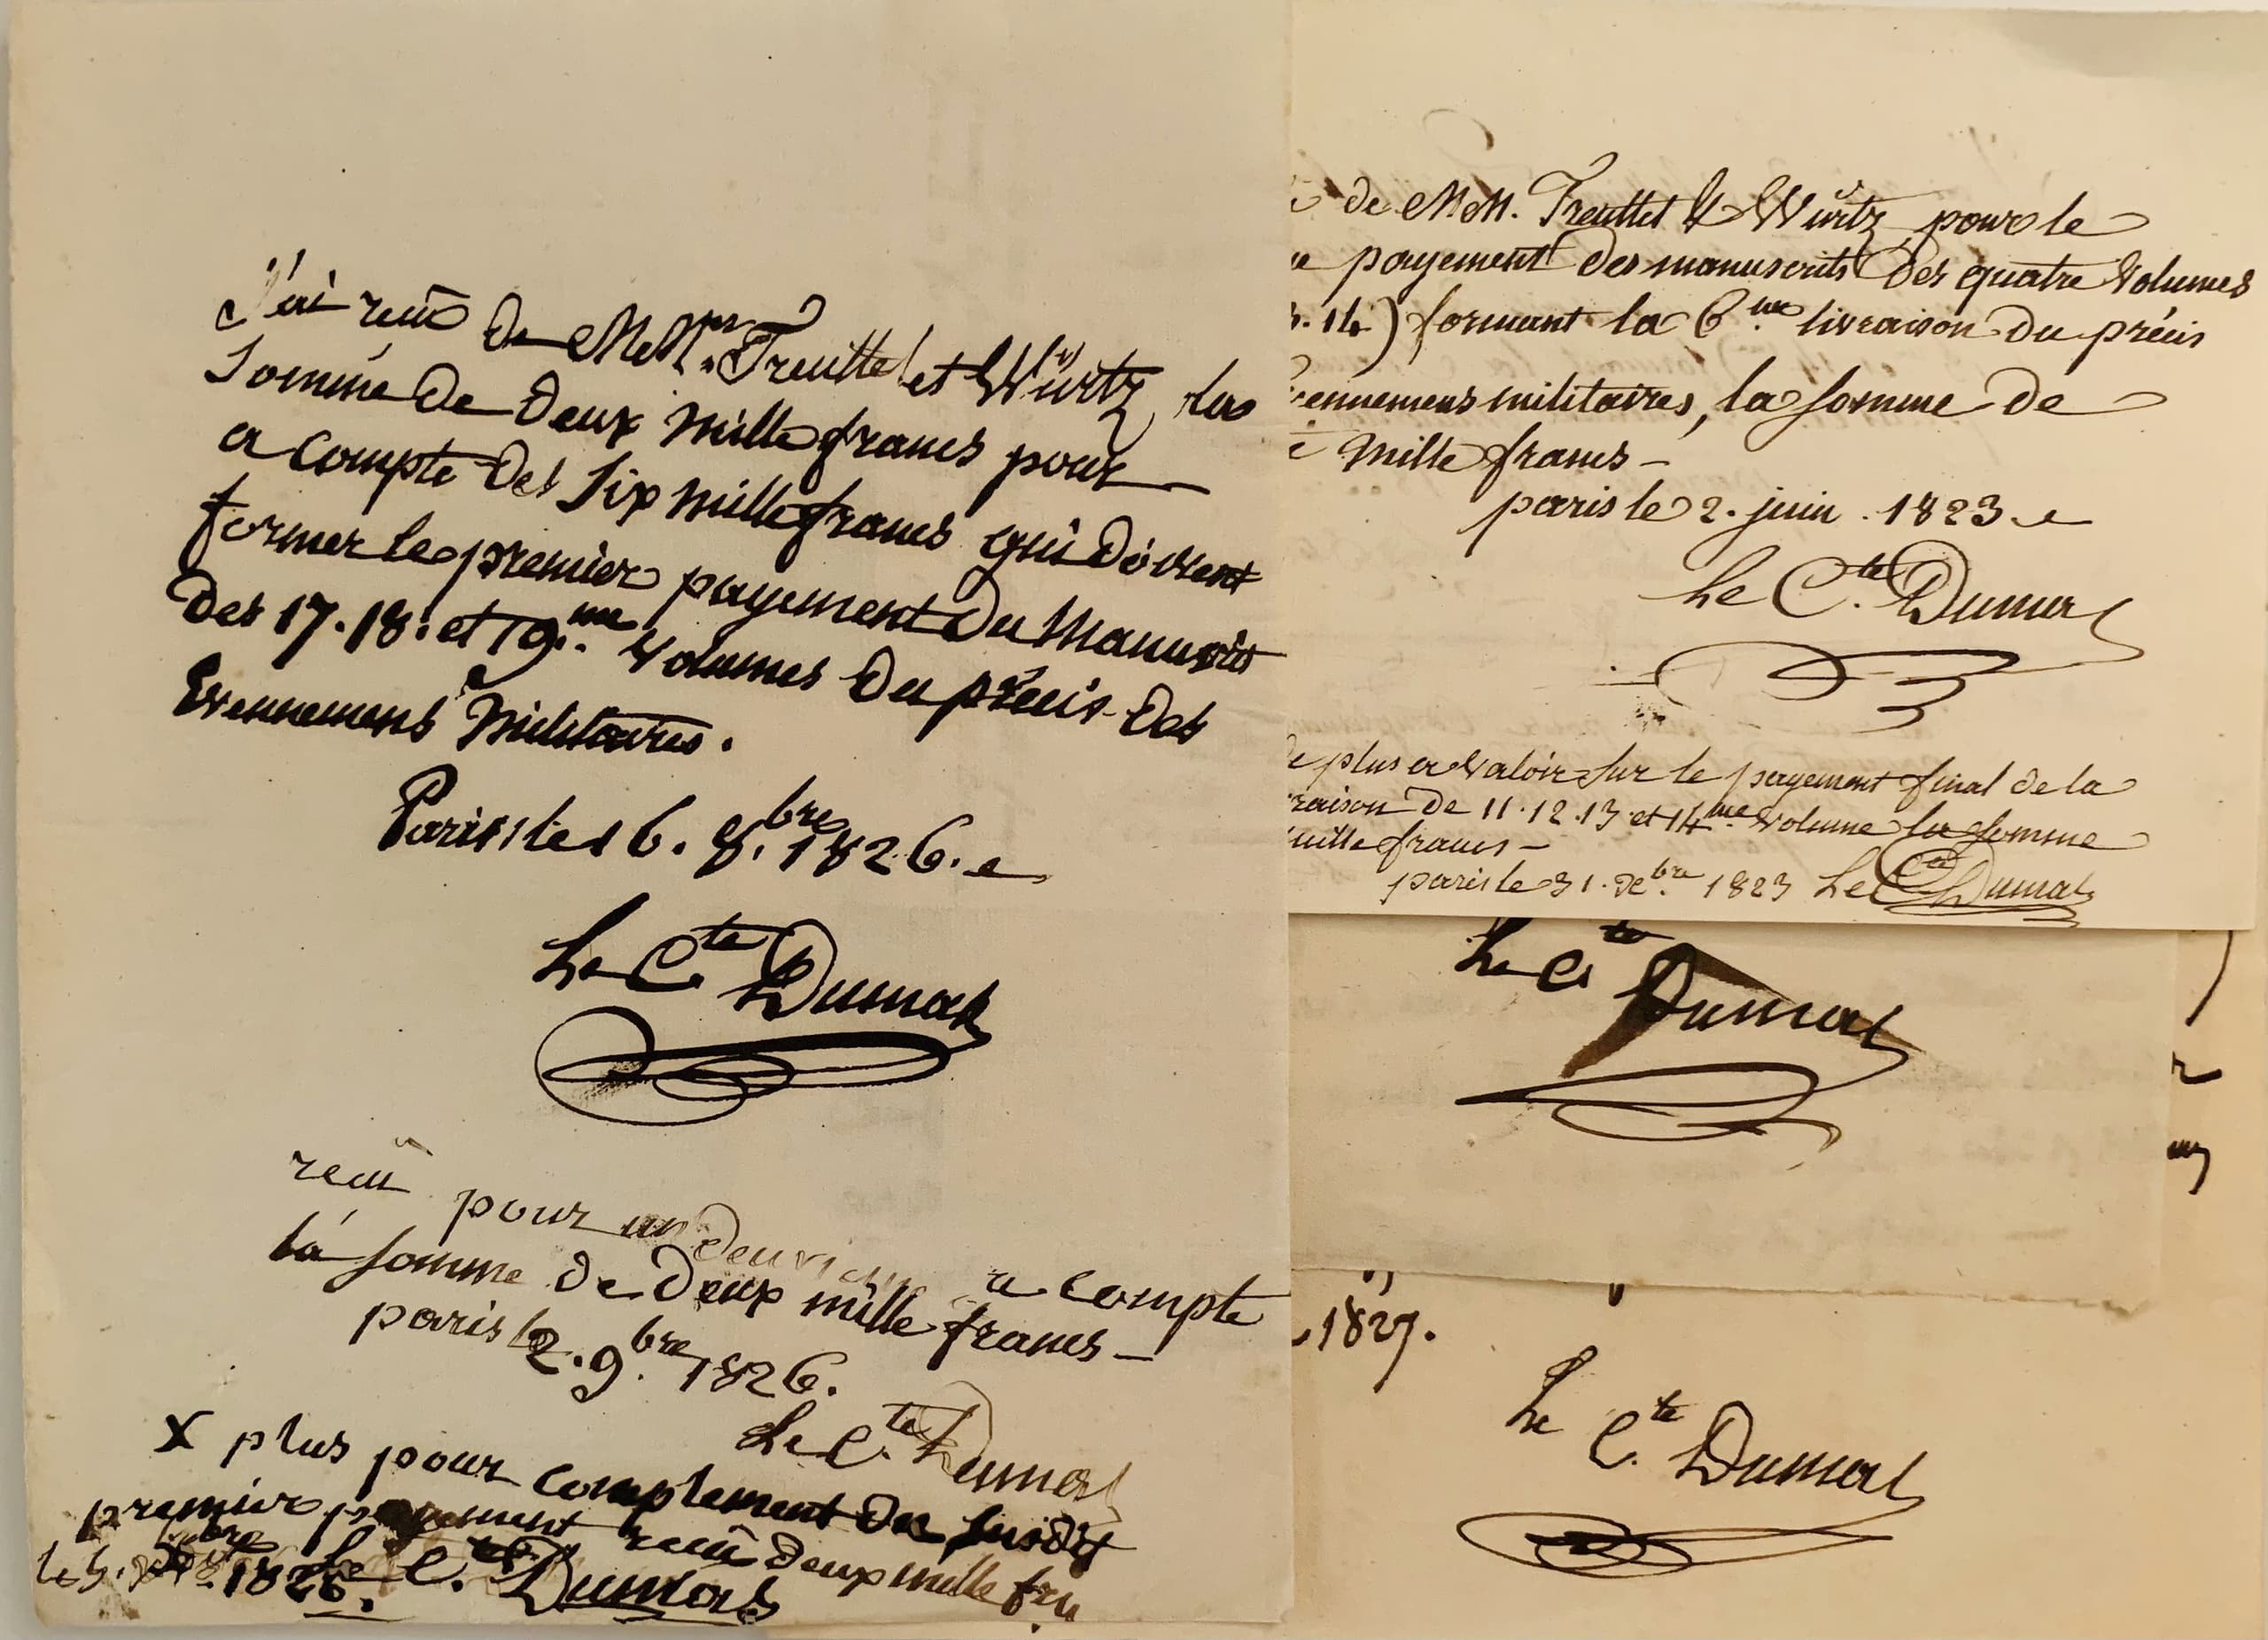 J'ai reçu de MM.rs Treuttel et Würtz, la
Somme de deux mille francs pour
a compte des Six mille francs qui doivent
former le premier payement du Manuscrit
des 17. 18. et 19.me volumes du précis des
Evennemens Militaires.
Paris le 16. 8.bre 1826.
Le C.te Dumas
reçu pour un deuxieme a compte
la somme de deux mille francs —
paris le 2. 9.bre 1826.
Le C.te Dumas
X plus pour complement du susdit
premier payement reçu deux mille fr
le 5. Xbre 1826. Le C.te Dumas
de MM. Treuttel & Würtz, pour le
payement des manuscrits des quatre volumes
. 14) formant la 6me livraison du précis
ennemens militaires, la somme de
mille francs —
paris le 2. juin . 1823.
Le C.te Dumas
de plus a valoir sur le payement final de la
raison de 11. 12. 13 et 14me volume la somme
mille francs —
paris le 31. Xbre 1823 Le Cte Dumas
Le Cte Dumas
1827.
Le C.te Dumas